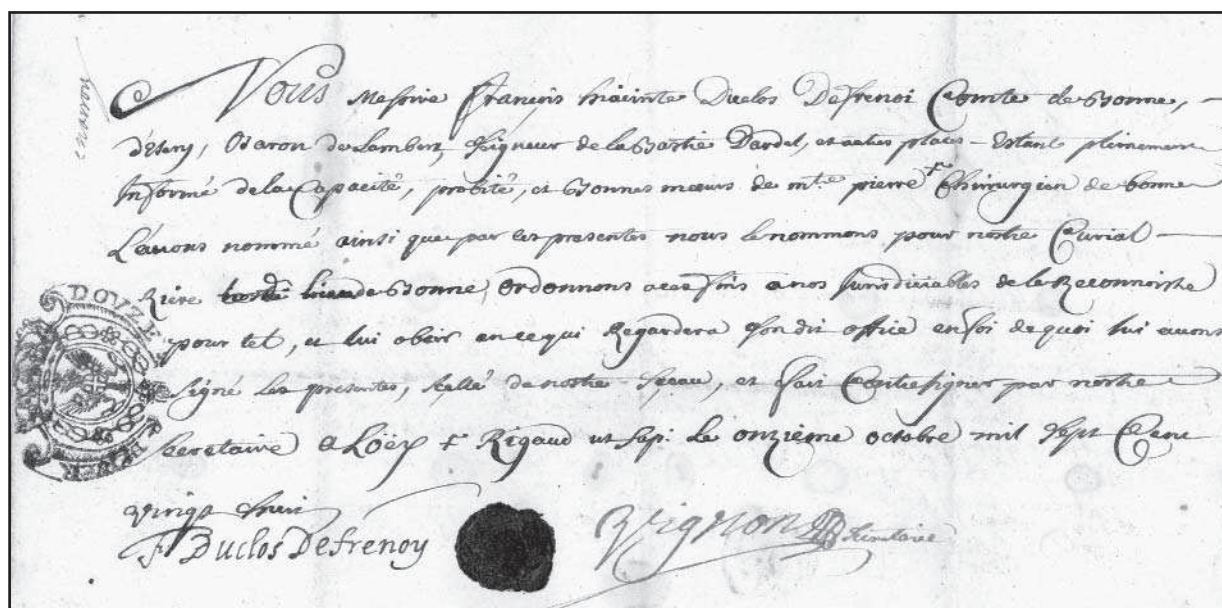 Nous Messire François hiacinte Duclos Defrenoi Comte de Bonne,
d'Esery, Baron du Lambert, Seigneur de la Bastie Dardel, et autres places - Estant pleinement
Informé de la Capacité, probité, et Bonnes moeurs de mtre pierre + Chirurgien de bonne
L'avons nommé ainsi que par les presentes nous le nommons pour nostre Curial
Riere de Bonne, Ordonnons a ces fins a nos Jurisdiciables de le Reconnoistre
pour tel, et lui obeir en ce qui Regardera son dit office en foi de quoi lui avons
signé les presentes, scellé de nostre sceau, et fait Contresigner par nostre
secretaire a Loëx + Rigaud ut sap: Le onzième octobre mil sept Cent
vingt huit
F Duclos Defrenoy
Vignon Secretaire
DOUZE